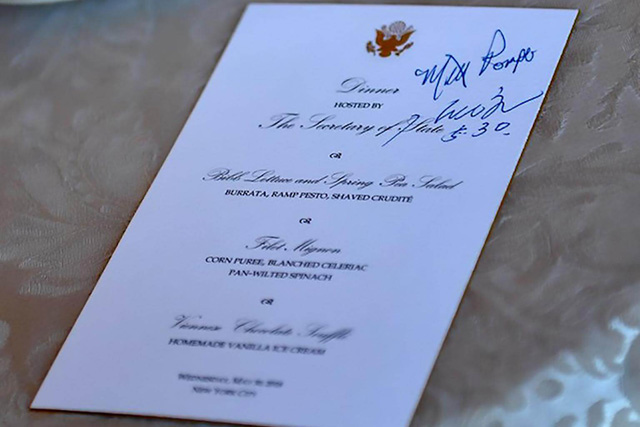 Dinner
HOSTED BY
The Secretary of State
5.30.
Bibb Lettuce and Spring Pea Salad
BURRATA, RAMP PESTO, SHAVED CRUDITÉ
Filet Mignon
CORN PUREE, BLANCHED CELERIAC
PAN-WILTED SPINACH
Viennese Chocolate Soufflé
HOMEMADE VANILLA ICE CREAM
WEDNESDAY, MAY 30, 2018
NEW YORK CITY